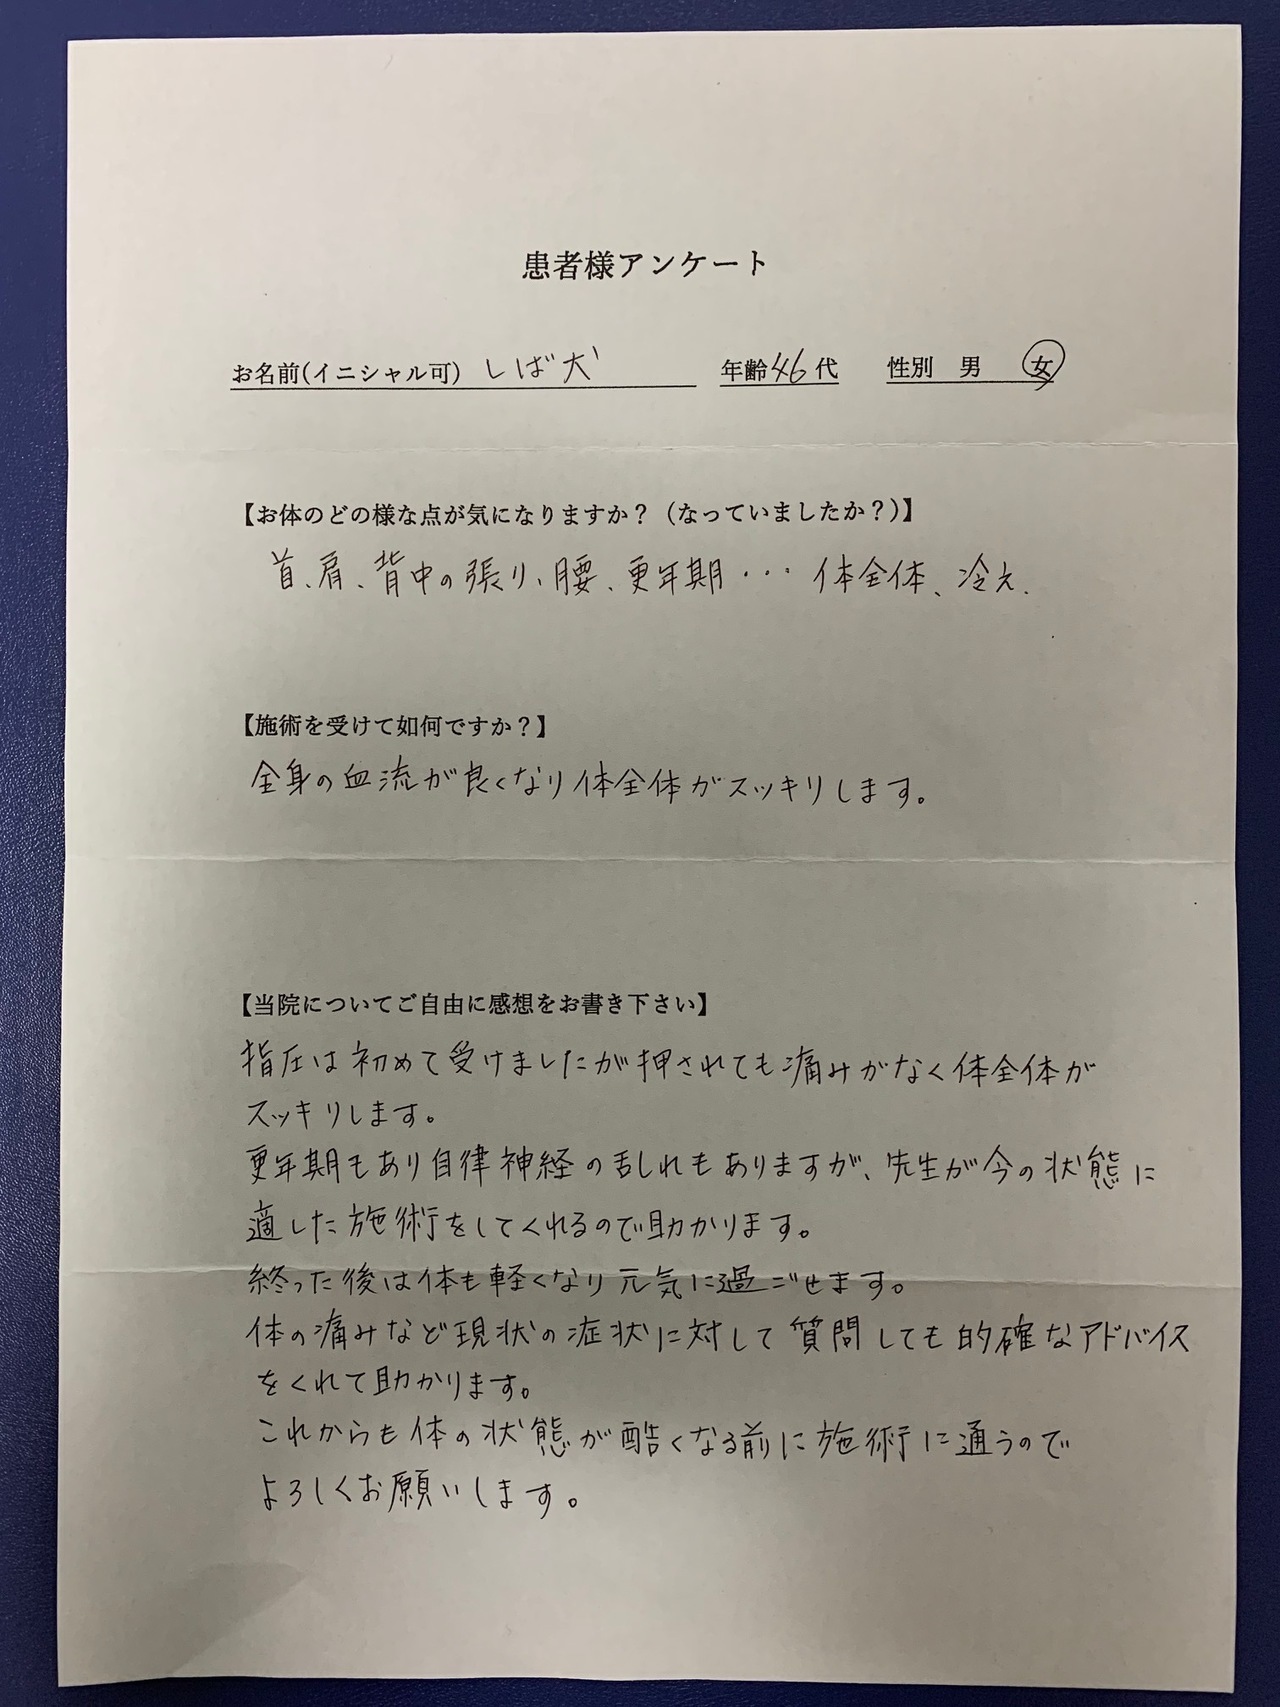 患者様アンケート
お名前(イニシャル可) しば犬 年齢 46 代 性別 男 女
【お体のどの様な点が気になりますか？（なっていましたか？）】
首、肩、背中の張り、腰、更年期・・・体全体、冷え、
【施術を受けて如何ですか？】
全身の血流が良くなり体全体がスッキリします。
【当院についてご自由に感想をお書き下さい】
指圧は初めて受けましたが押されても痛みがなく体全体が
スッキリします。
更年期もあり自律神経の乱れもありますが、先生が今の状態に
適した施術をしてくれるので助かります。
終った後は体も軽くなり元気に過ごせます。
体の痛みなど現状の症状に対して質問しても的確なアドバイス
をくれて助かります。
これからも体の状態が酷くなる前に施術に通うので
よろしくお願いします。